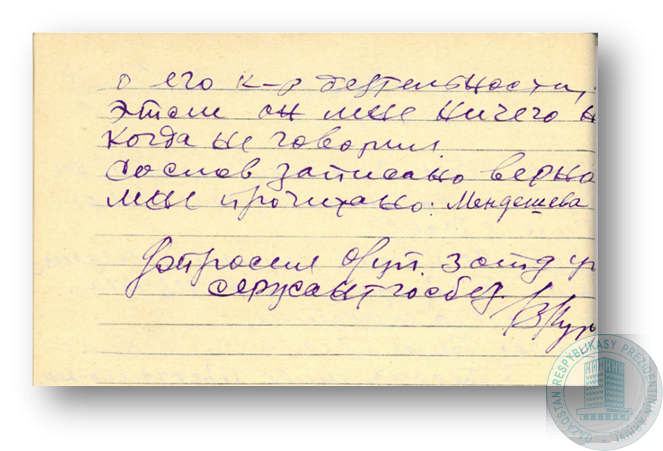 о его к-р деятельности,
этом он мне ничего н
когда не говорил.
Со слов записано верно
мне прочитано: Мендешева
Допросил Оуп. 3 отд у
сержант госбез.
QAZAQSTAN RESPYBLIKASY PREZIDENTINIŃ